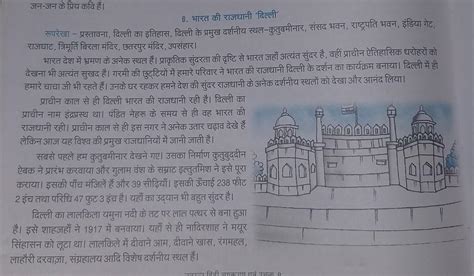 जन-जन के प्रिय कवि हैं।
8. भारत की राजधानी 'दिल्ली'
रूपरेखा – प्रस्तावना, दिल्ली का इतिहास, दिल्ली के प्रमुख दर्शनीय स्थल–कुतुबमीनार, संसद भवन, राष्ट्रपति भवन, इंडिया गेट,
राजघाट, त्रिमूर्ति बिरला मंदिर, छतरपुर मंदिर, उपसंहार।
भारत देश में भ्रमण के अनेक स्थल हैं। प्राकृतिक सुंदरता की दृष्टि से भारत जहाँ अत्यंत सुंदर है, वहीं प्राचीन ऐतिहासिक धरोहरों को
देखना भी अत्यंत सुखद है। गरमी की छुट्टियों में हमारे परिवार ने भारत की राजधानी दिल्ली के दर्शन का कार्यक्रम बनाया। दिल्ली में ही
हमारे चाचा जी भी रहते हैं। उनके घर रहकर हमने देश की सुंदर राजधानी के अनेक दर्शनीय स्थलों को देखा और आनंद लिया।
प्राचीन काल से ही दिल्ली भारत की राजधानी रही है। दिल्ली का
प्राचीन नाम इंद्रप्रस्थ था। पंडित नेहरू के समय से ही वह भारत की
राजधानी रही। प्राचीन काल से ही इस नगर ने अनेक उतार चढ़ाव देखे हैं
लेकिन आज यह विश्व की प्रमुख राजधानियों में जानी जाती है।
सबसे पहले हम कुतुबमीनार देखने गए। उसका निर्माण कुतुबुद्दीन
ऐबक ने प्रारंभ करवाया और गुलाम वंश के सम्राट इल्तुतमिश ने इसे पूरा
कराया। इसकी पाँच मंजिलें हैं और 39 सीढ़ियाँ। इसकी ऊँचाई 238 फीट
2 इंच तथा परिधि 47 फुट 3 इंच है। यहाँ का उद्यान भी बहुत सुंदर है।
दिल्ली का लालकिला यमुना नदी के तट पर लाल पत्थर से बना हुआ
है। इसे शाहजहाँ ने 1917 में बनवाया। यहाँ से ही नादिरशाह ने मयूर
सिंहासन को लूटा था। लालकिले में दीवाने आम, दीवाने खास, रंगमहल,
लाहौरी दरवाज़ा, संग्रहालय आदि विशेष दर्शनीय स्थल हैं।